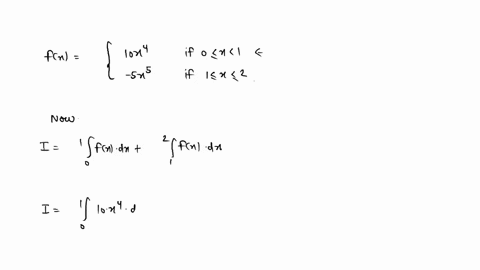 f(x) = { 10x⁴ if 0 ≤ x < 1 ←
-5x⁵ if 1 ≤ x ≤ 2
Now
I = ∫₀¹ f(x)·dx + ∫₁² f(x)·dx
I = ∫₀¹ 10·x⁴·d